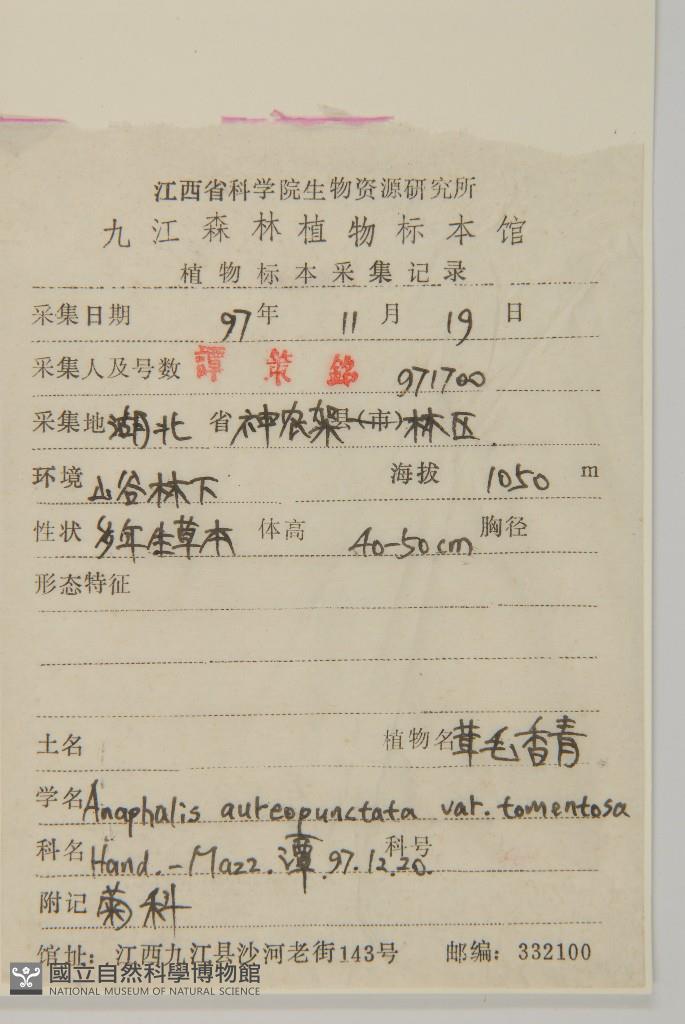 江西省科学院生物资源研究所
九江森林植物标本馆
植物标本采集记录
采集日期 97年 11月 19日
采集人及号数 譚策銘 971700
采集地 湖北 省 神农架 县(市) 林区
环境 山谷林下 海拔 1050 m
性状 多年生草本 体高 40-50cm 胸径
形态特征
土名 植物名 茸毛香青
学名 Anaphalis aureopunctata var. tomentosa
科名 Hand.-Mazz. 谭 97.12.20. 科号
附记 菊科
馆址：江西九江县沙河老街143号 邮编：332100
國立自然科學博物館
NATIONAL MUSEUM OF NATURAL SCIENCE